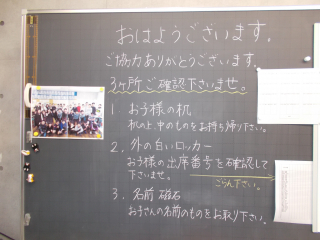 おはようございます。
ご協力ありがとうございます。
3ヶ所ご確認下さいませ。
1. お子様の机
机の上、中のものをお持ち帰り下さい。
2. 外の白いロッカー
お子様の出席番号を確認して
下さいませ。
ごらん下さい。
3. 名前 磁石
お子さんの名前のものをお取り下さい。